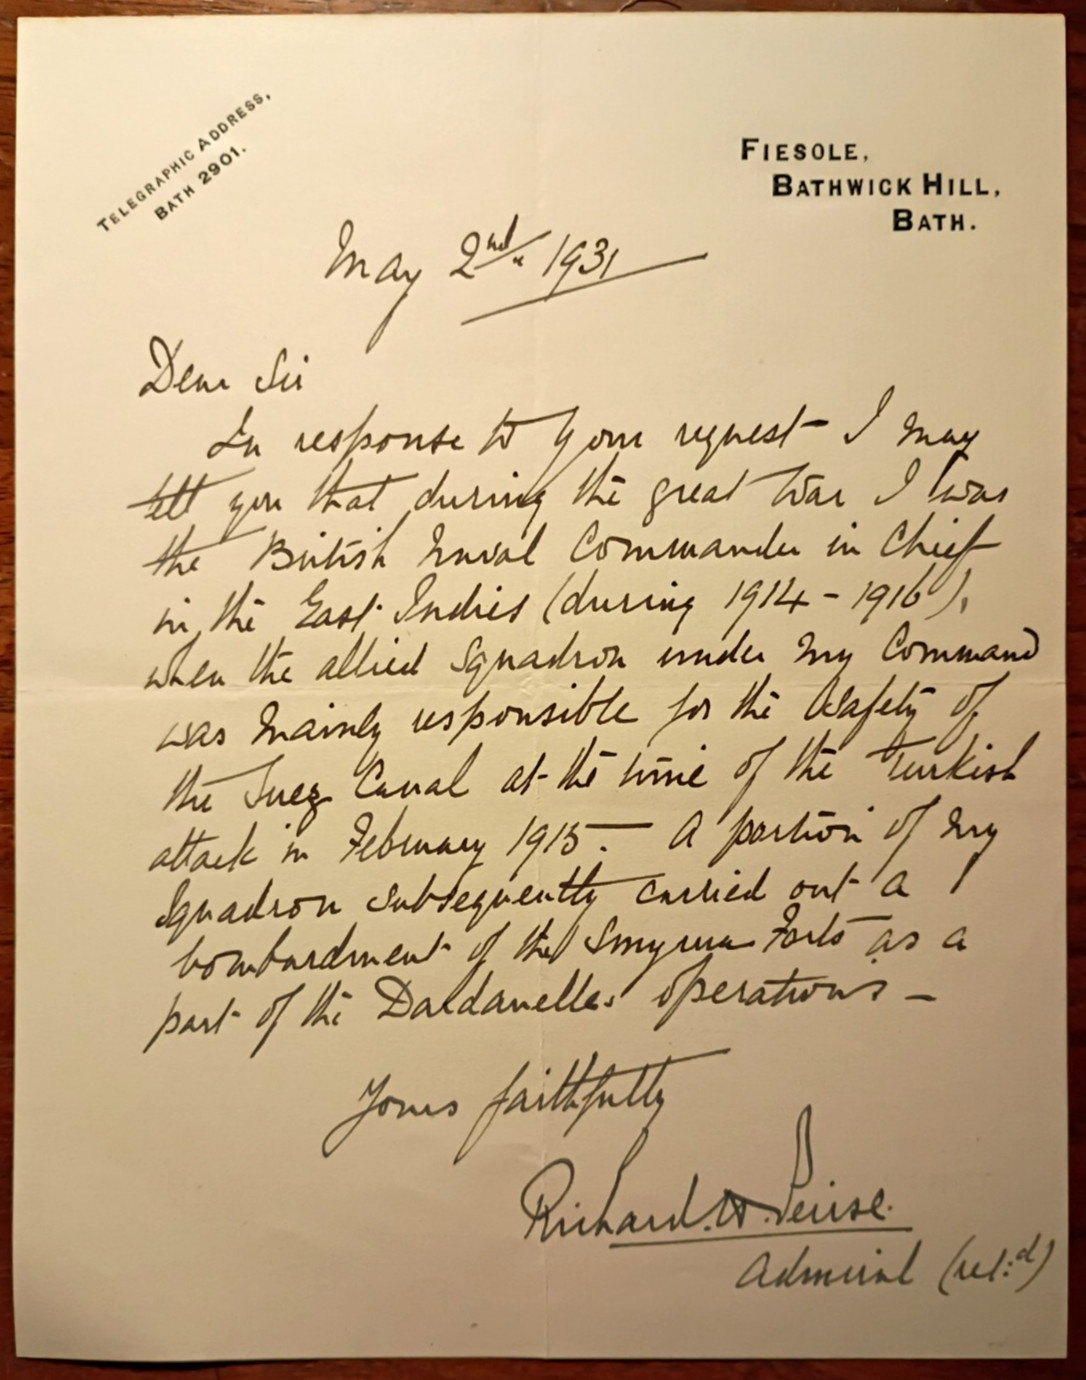 TELEGRAPHIC ADDRESS,
BATH 2901.
FIESOLE,
BATHWICK HILL,
BATH.
May 2nd 1931
Dear Sir
In response to your request I may
tell you that during the great War I was
the British Naval Commander in Chief
in the East Indies (during 1914 - 1916),
when the allied Squadron under my Command
was mainly responsible for the safety of
the Suez Canal at the time of the Turkish
attack in February 1915. — A portion of my
Squadron subsequently carried out a
bombardment of the Smyrna Forts as a
part of the Dardanelles operations —
Yours faithfully
Richard. H. Peirse.
Admiral (ret:d)